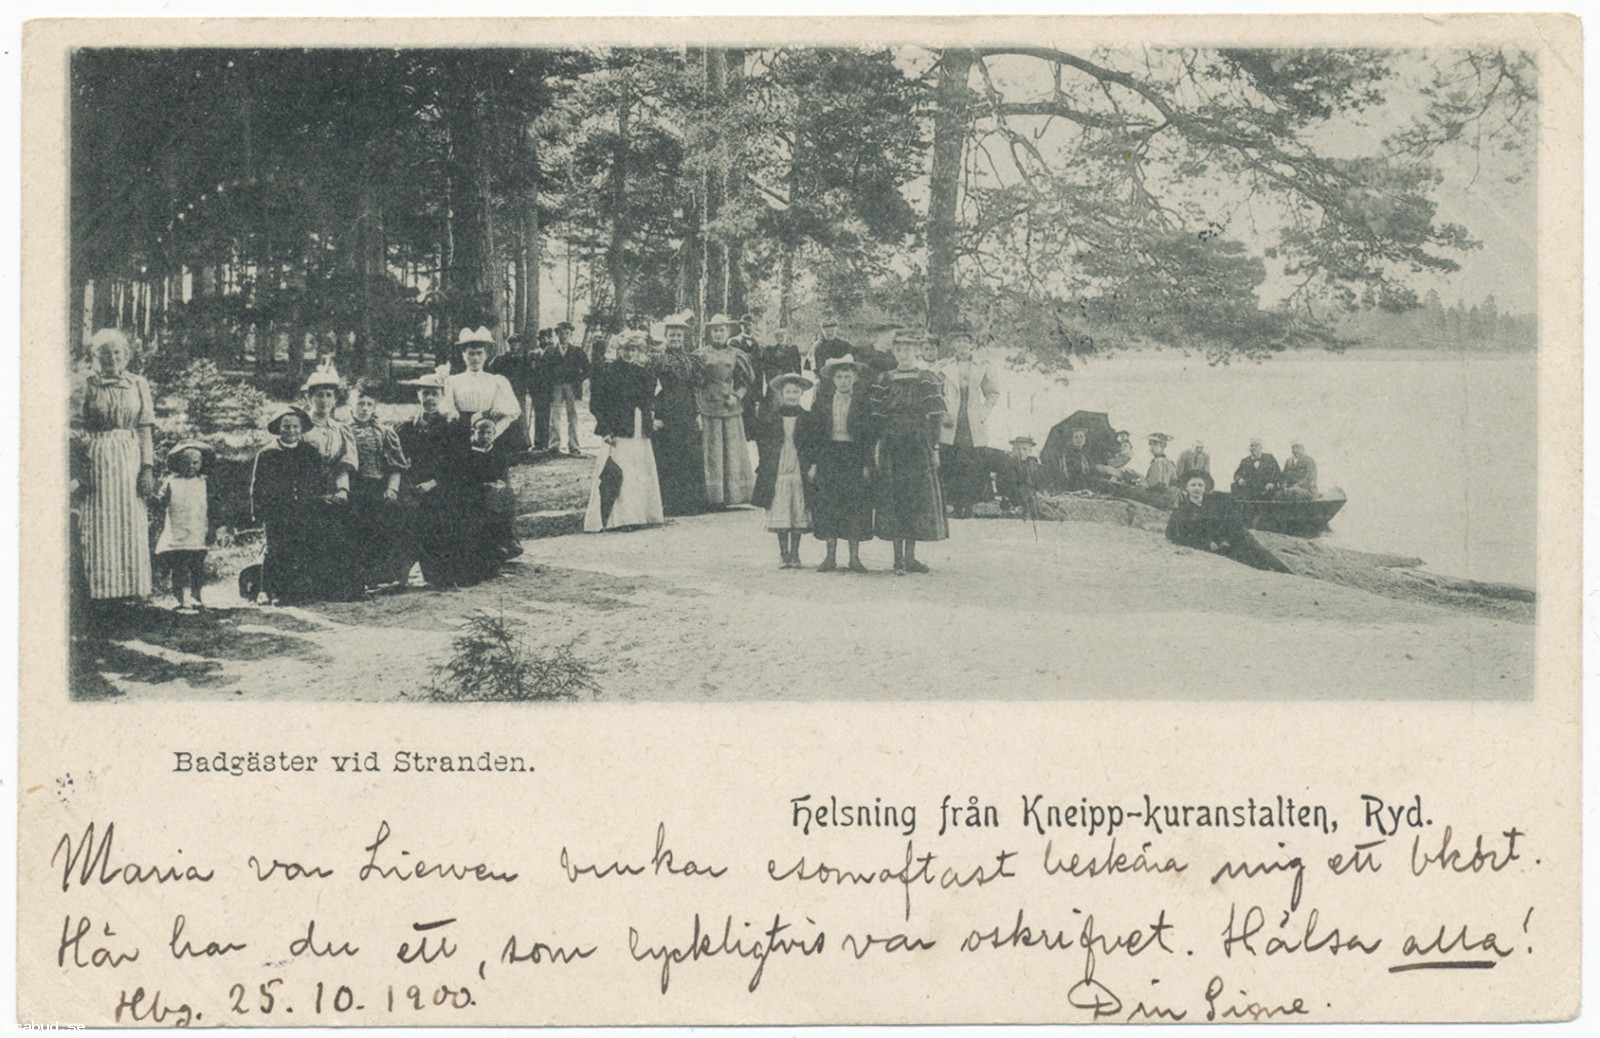 Badgäster vid Stranden.
Helsning från Kneipp-kuranstalten, Ryd.
Maria von Liewen brukar esomoftast beskära mig ett bkort.
Här har du ett, som lyckligtvis var oskrifvet. Hälsa alla!
Hbg. 25. 10. 1900.
Din Signe.